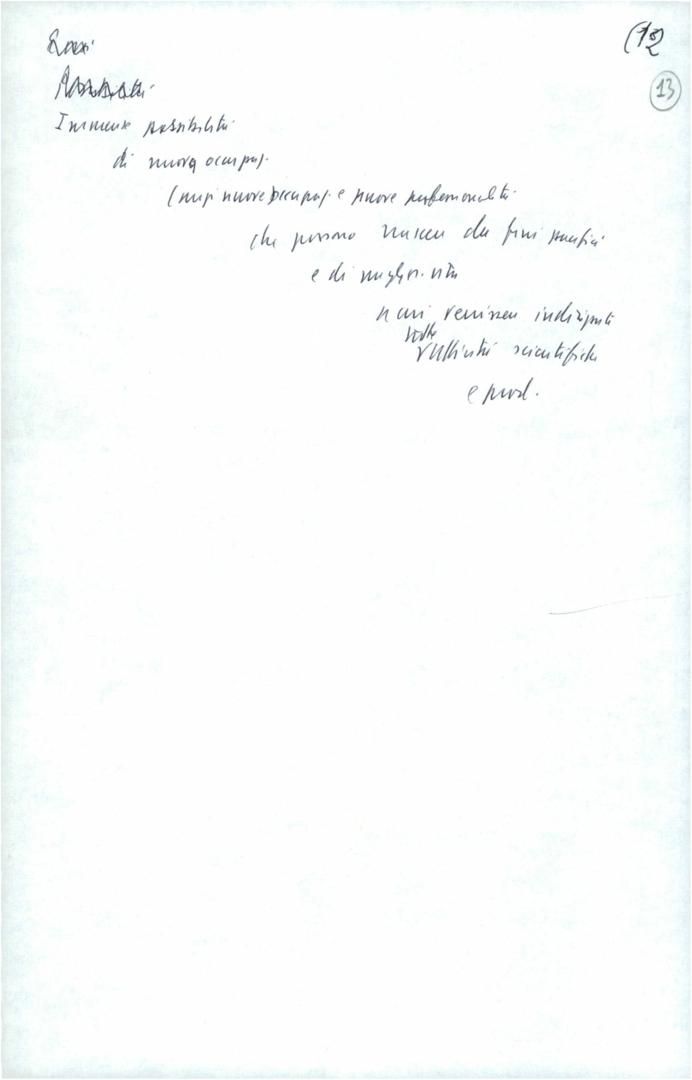 (12
13
Immense possibilità
di nuova occupaz.
(anzi nuove) occupaz. e nuove professionalità
che possono nascere da fini pacifici
e di miglior. vita
a cui venissero indirizzati
tutte
scientifiche
e prod.